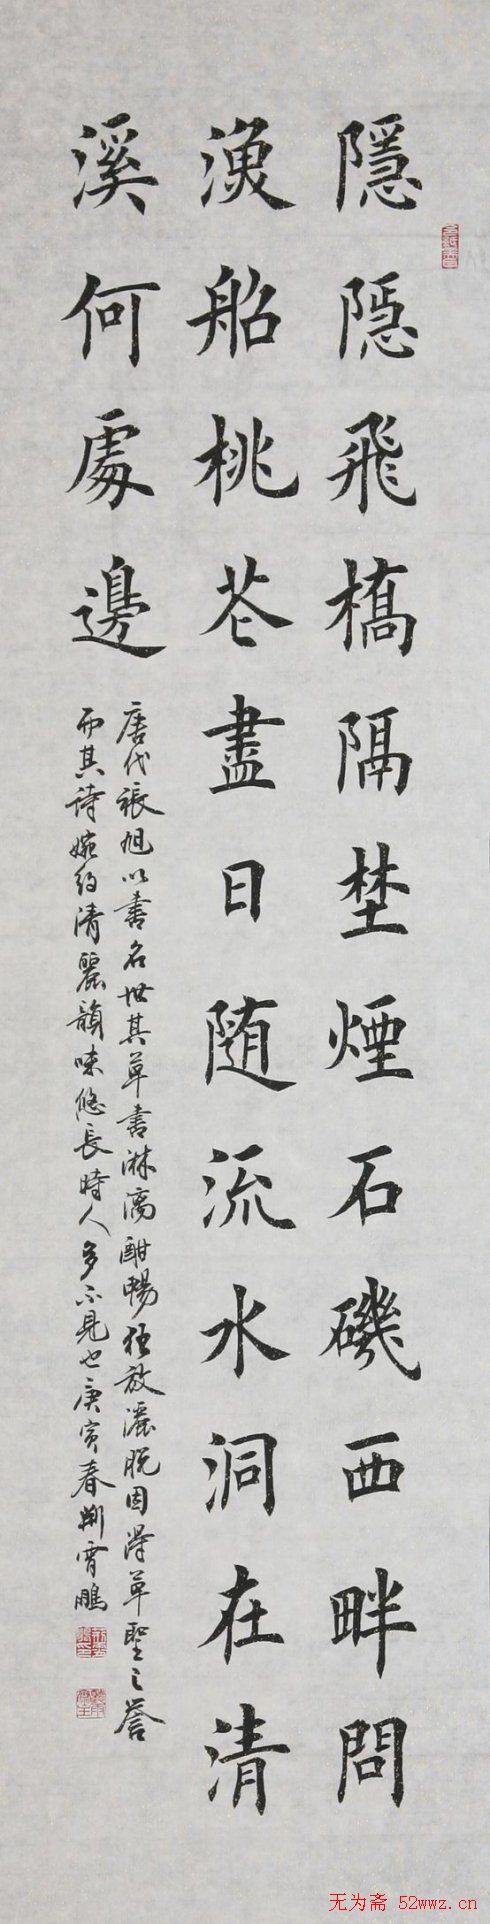 隱隠飛橋隔埜煙石磯西畔問
漁船桃花盡日随流水洞在清
溪何處邊
唐代張旭以書名世其草書淋漓酣暢狂放灑脫因得草聖之譽
而其詩婉約清麗韻味悠長時人多不見也庚寅春荆霄鵬
无为斋 52wwz.cn